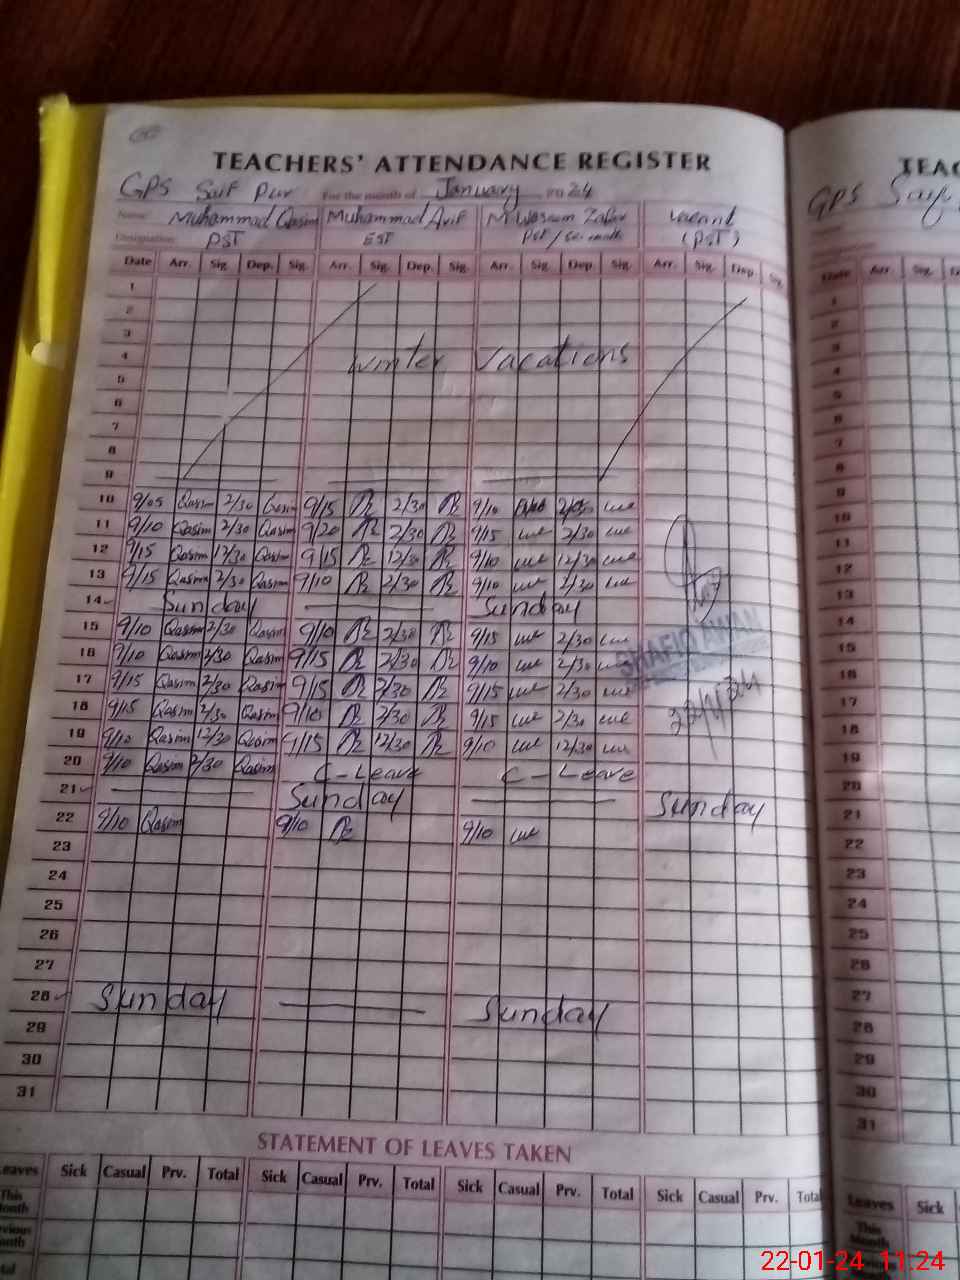 TEACHERS' ATTENDANCE REGISTER
GPS Saif Pur For the month of January 2024
Name: Muhammad Qasim Muhammad Arif M Waseem Zafar Vacant
Designation: PST EST PST / (PST)
Date Arr. Sig. Dep. Sig. Arr. Sig. Dep. Sig. Arr. Sig. Dep. Sig. Arr. Sig. Dep. Sig.
1
2
3
4 Winter Vacations
5
6
7
8
9
10 9/05 Qasim 2/30 Qasim 9/15 2/30 9/10
11 9/10 Qasim 2/30 Qasim 9/20 2/30 9/15 2/30
12 9/15 Qasim 12/30 Qasim 9/15 12/30 9/10 12/30
13 9/15 Qasim 2/30 Qasim 9/10 2/30 9/10 2/30
14 Sunday Sunday
15 9/10 Qasim 2/30 Qasim 9/10 2/30 9/15 2/30
16 9/10 Qasim 2/30 Qasim 9/15 2/30 9/10 2/30
SHAFIQ AWAN
17 9/15 Qasim 2/30 Qasim 9/15 2/30 9/15 2/30
18 9/15 Qasim 2/30 Qasim 9/10 2/30 9/15 2/30
19 9/10 Qasim 12/30 Qasim 9/15 12/30 9/10 12/30
20 9/10 Qasim 2/30 Qasim C-Leave C-Leave
21 Sunday Sunday
22 9/10 Qasim 9/10 9/10
23
24
25
26
27
28 Sunday Sunday
29
30
31
STATEMENT OF LEAVES TAKEN
Leaves Sick Casual Prv. Total Sick Casual Prv. Total Sick Casual Prv. Total Sick Casual Prv. Total
This Month
Previous Month
Total
TEAC
GPS Saif
Date Arr. Sig.
1
2
3
4
5
6
7
8
9
10
11
12
13
14
15
16
17
18
19
20
21
22
23
24
25
26
27
28
29
30
31
Leaves Sick
This Month
Previous Month
22-01-24 11:24